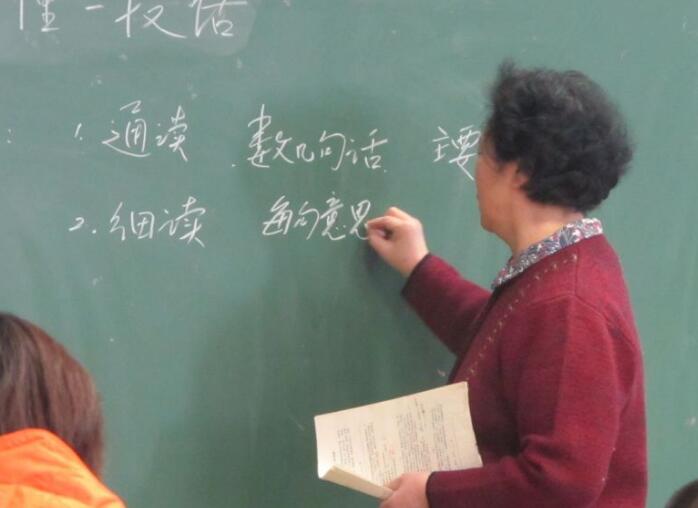 一段话
: 1. 通读 数几句话 主要
2. 细读 每句意思